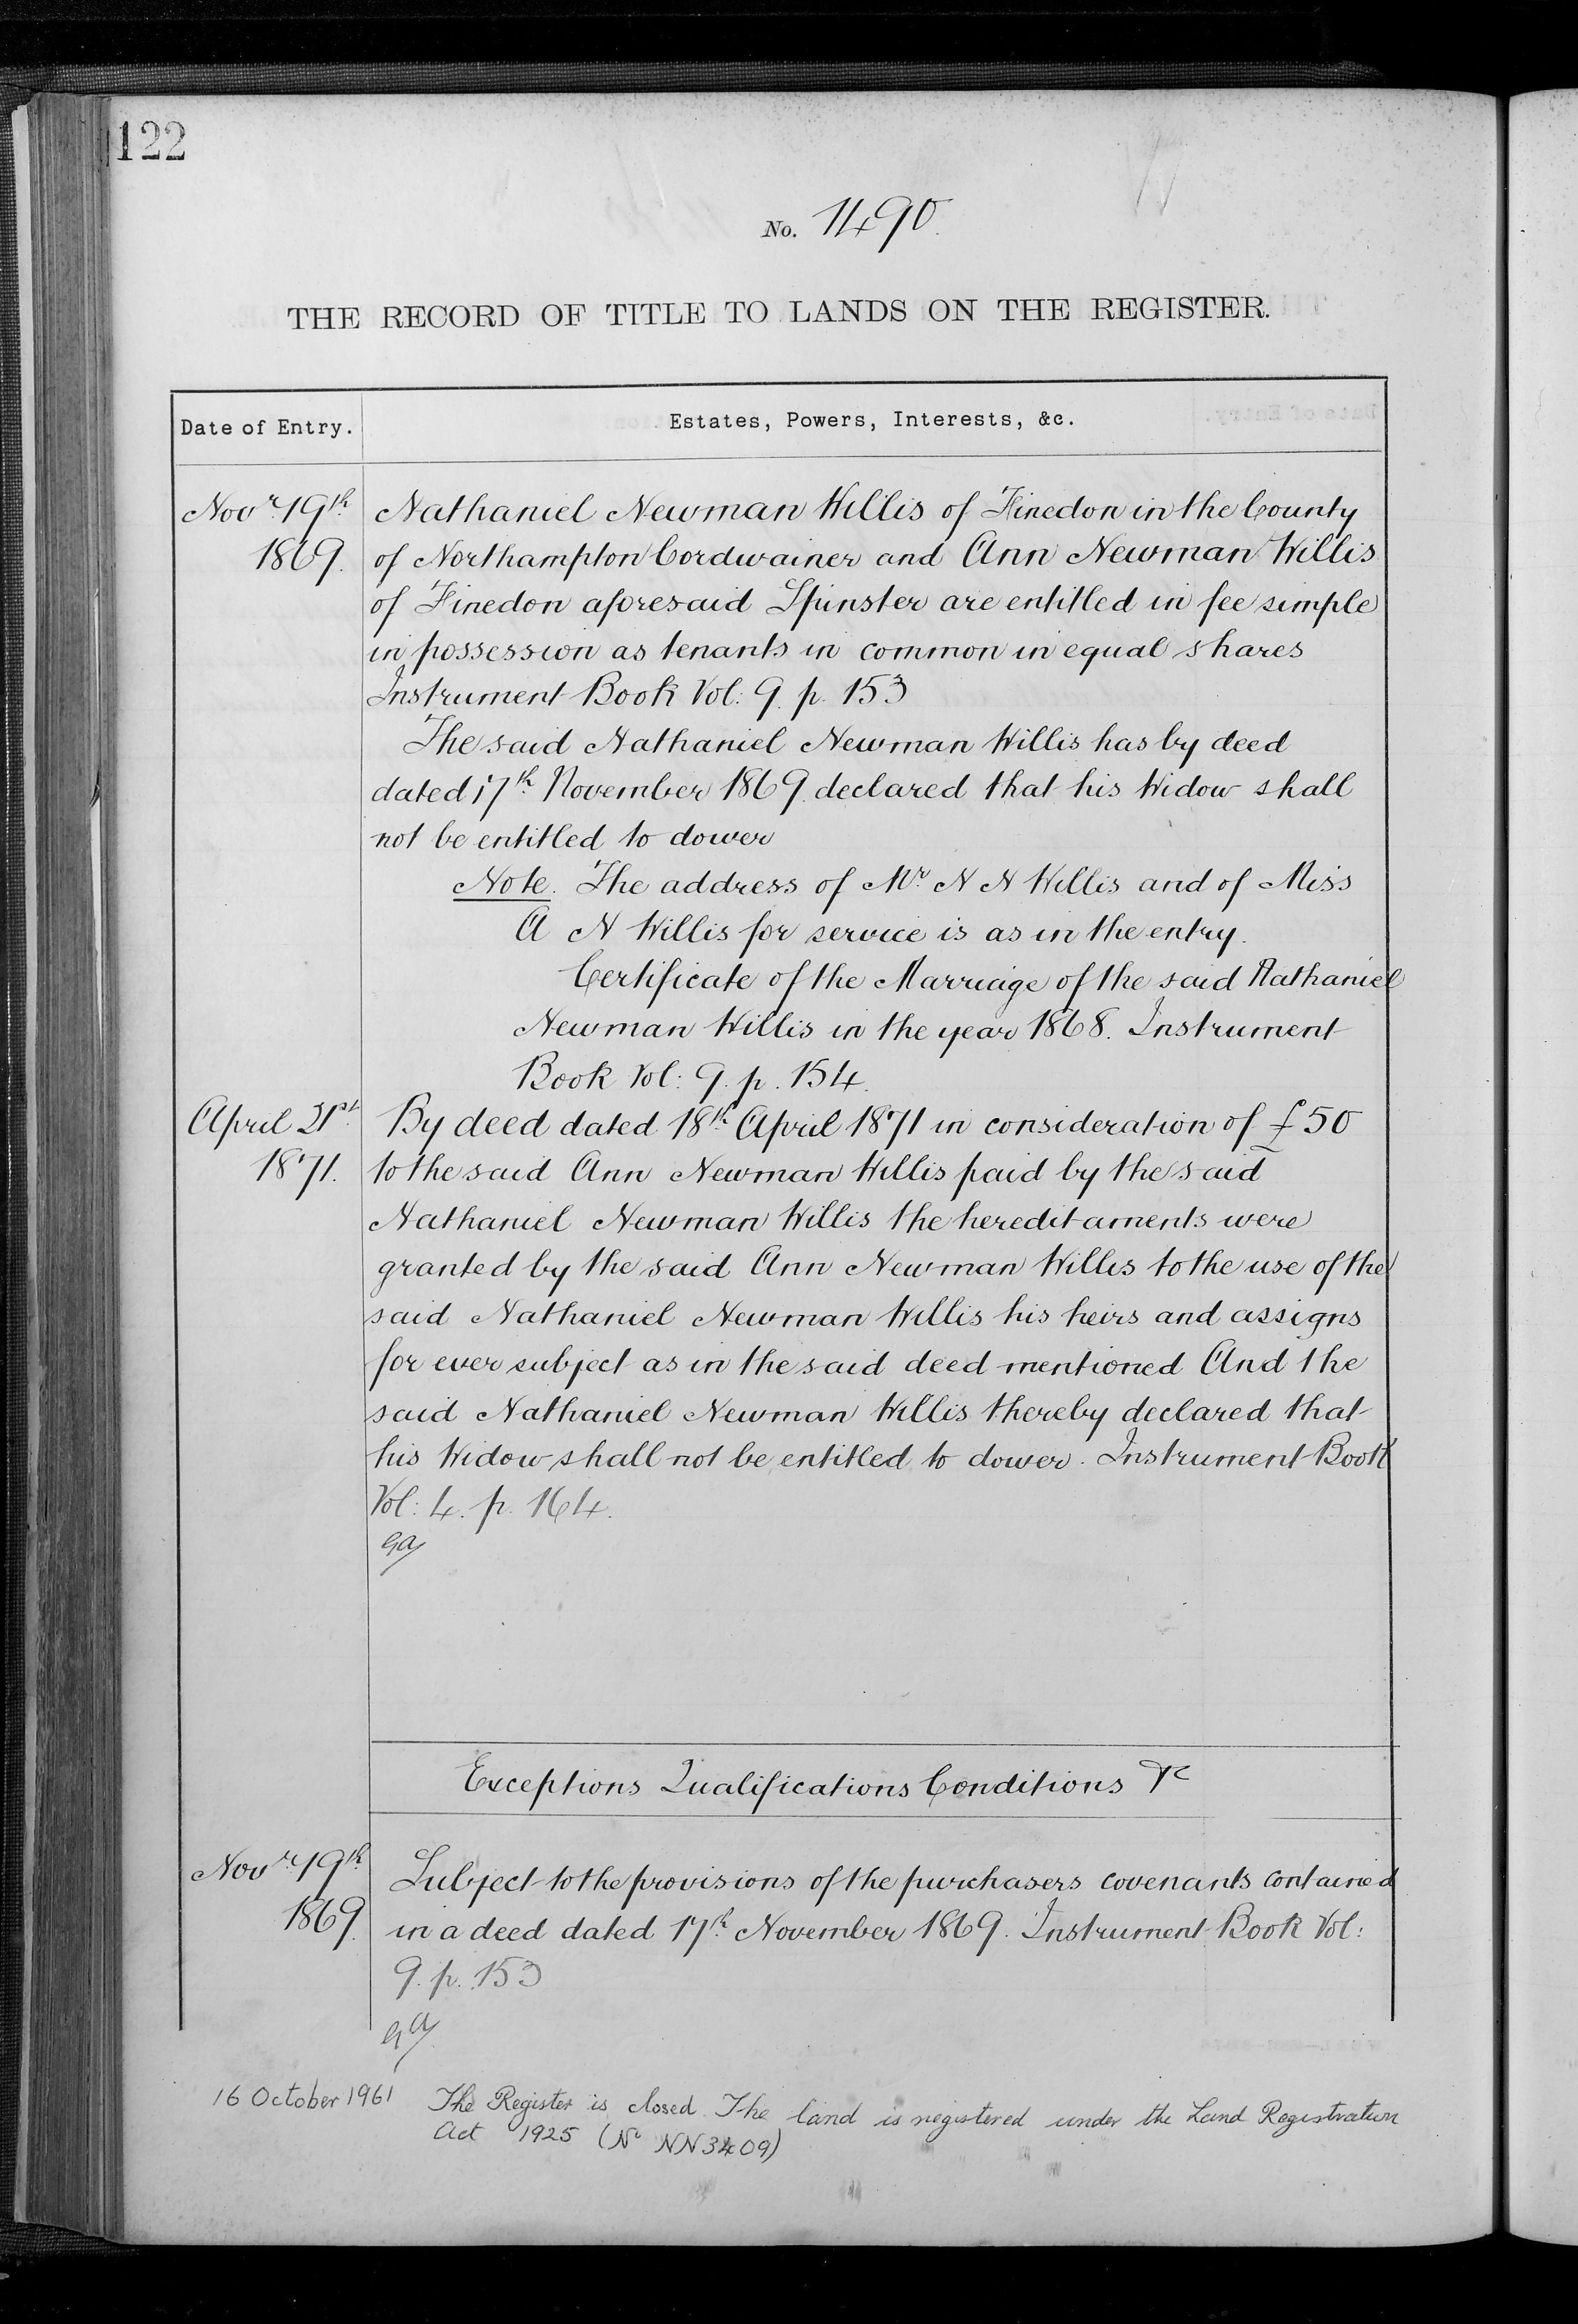 122
No. 1490.
THE RECORD OF TITLE TO LANDS ON THE REGISTER.
Date of Entry.
Estates, Powers, Interests, &c.
Novr. 19th
1869.
Nathaniel Newman Willis of Finedon in the County
of Northampton Cordwainer and Ann Newman Willis
of Finedon aforesaid Spinster are entitled in fee simple
in possession as tenants in common in equal shares
Instrument Book Vol: 9. p. 153
The said Nathaniel Newman Willis has by deed
dated 17th November 1869 declared that his Widow shall
not be entitled to dower
Note. The address of Mr. N N Willis and of Miss
A N Willis for service is as in the entry.
Certificate of the Marriage of the said Nathaniel
Newman Willis in the year 1868. Instrument
Book Vol: 9. p. 154.
April 21st
1871.
By deed dated 18th April 1871 in consideration of £50
to the said Ann Newman Willis paid by the said
Nathaniel Newman Willis the hereditaments were
granted by the said Ann Newman Willis to the use of the
said Nathaniel Newman Willis his heirs and assigns
for ever subject as in the said deed mentioned And the
said Nathaniel Newman Willis thereby declared that
his Widow shall not be entitled to dower. Instrument Book
Vol: 4. p. 164.
Exceptions Qualifications Conditions &c
Novr. 19th
1869.
Subject to the provisions of the purchasers covenants contained
in a deed dated 17th November 1869. Instrument Book Vol:
9. p. 153
16 October 1961 The Register is closed. The land is registered under the Land Registration
Act 1925 (No NN3409)